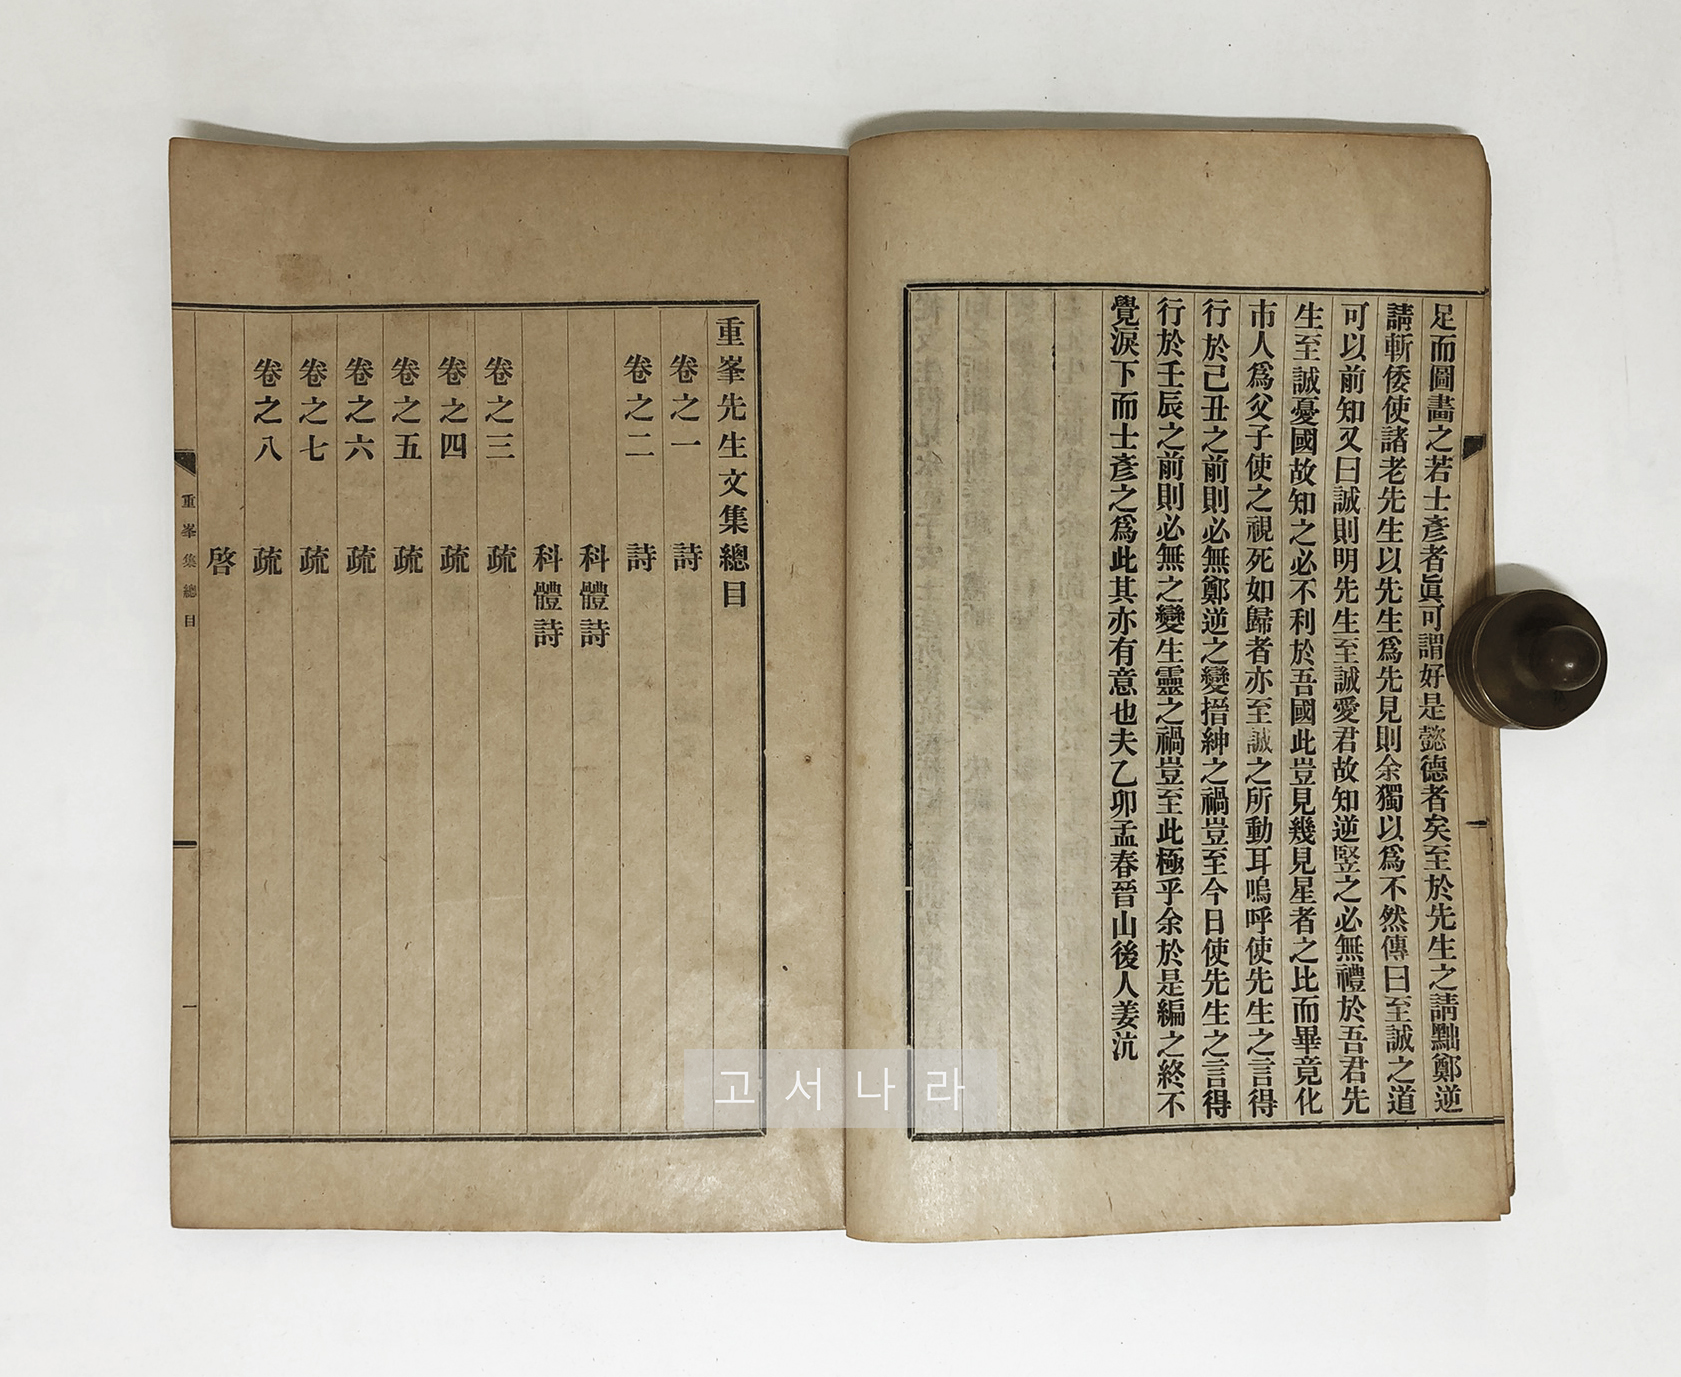 足而圖畵之若士彥者眞可謂好是懿德者矣至於先生之請黜鄭逆
請斬倭使諸老先生以先生爲先見則余獨以爲不然傳曰至誠之道
可以前知又曰誠則明先生至誠愛君故知逆竪之必無禮於吾君先
生至誠憂國故知之必不利於吾國此豈見幾見星者之比而畢竟化
市人爲父子使之視死如歸者亦至誠之所動耳嗚呼使先生之言得
行於己丑之前則必無鄭逆之變搢紳之禍豈至今日使先生之言得
行於壬辰之前則必無之變生靈之禍豈至此極乎余於是編之終不
覺淚下而士彥之爲此其亦有意也夫乙卯孟春晉山後人姜沆
重峯先生文集總目
卷之一 詩
卷之二 詩
科體詩
科體詩
卷之三 疏
卷之四 疏
卷之五 疏
卷之六 疏
卷之七 疏
卷之八 疏
啓
重峯集總目 一
고서나라